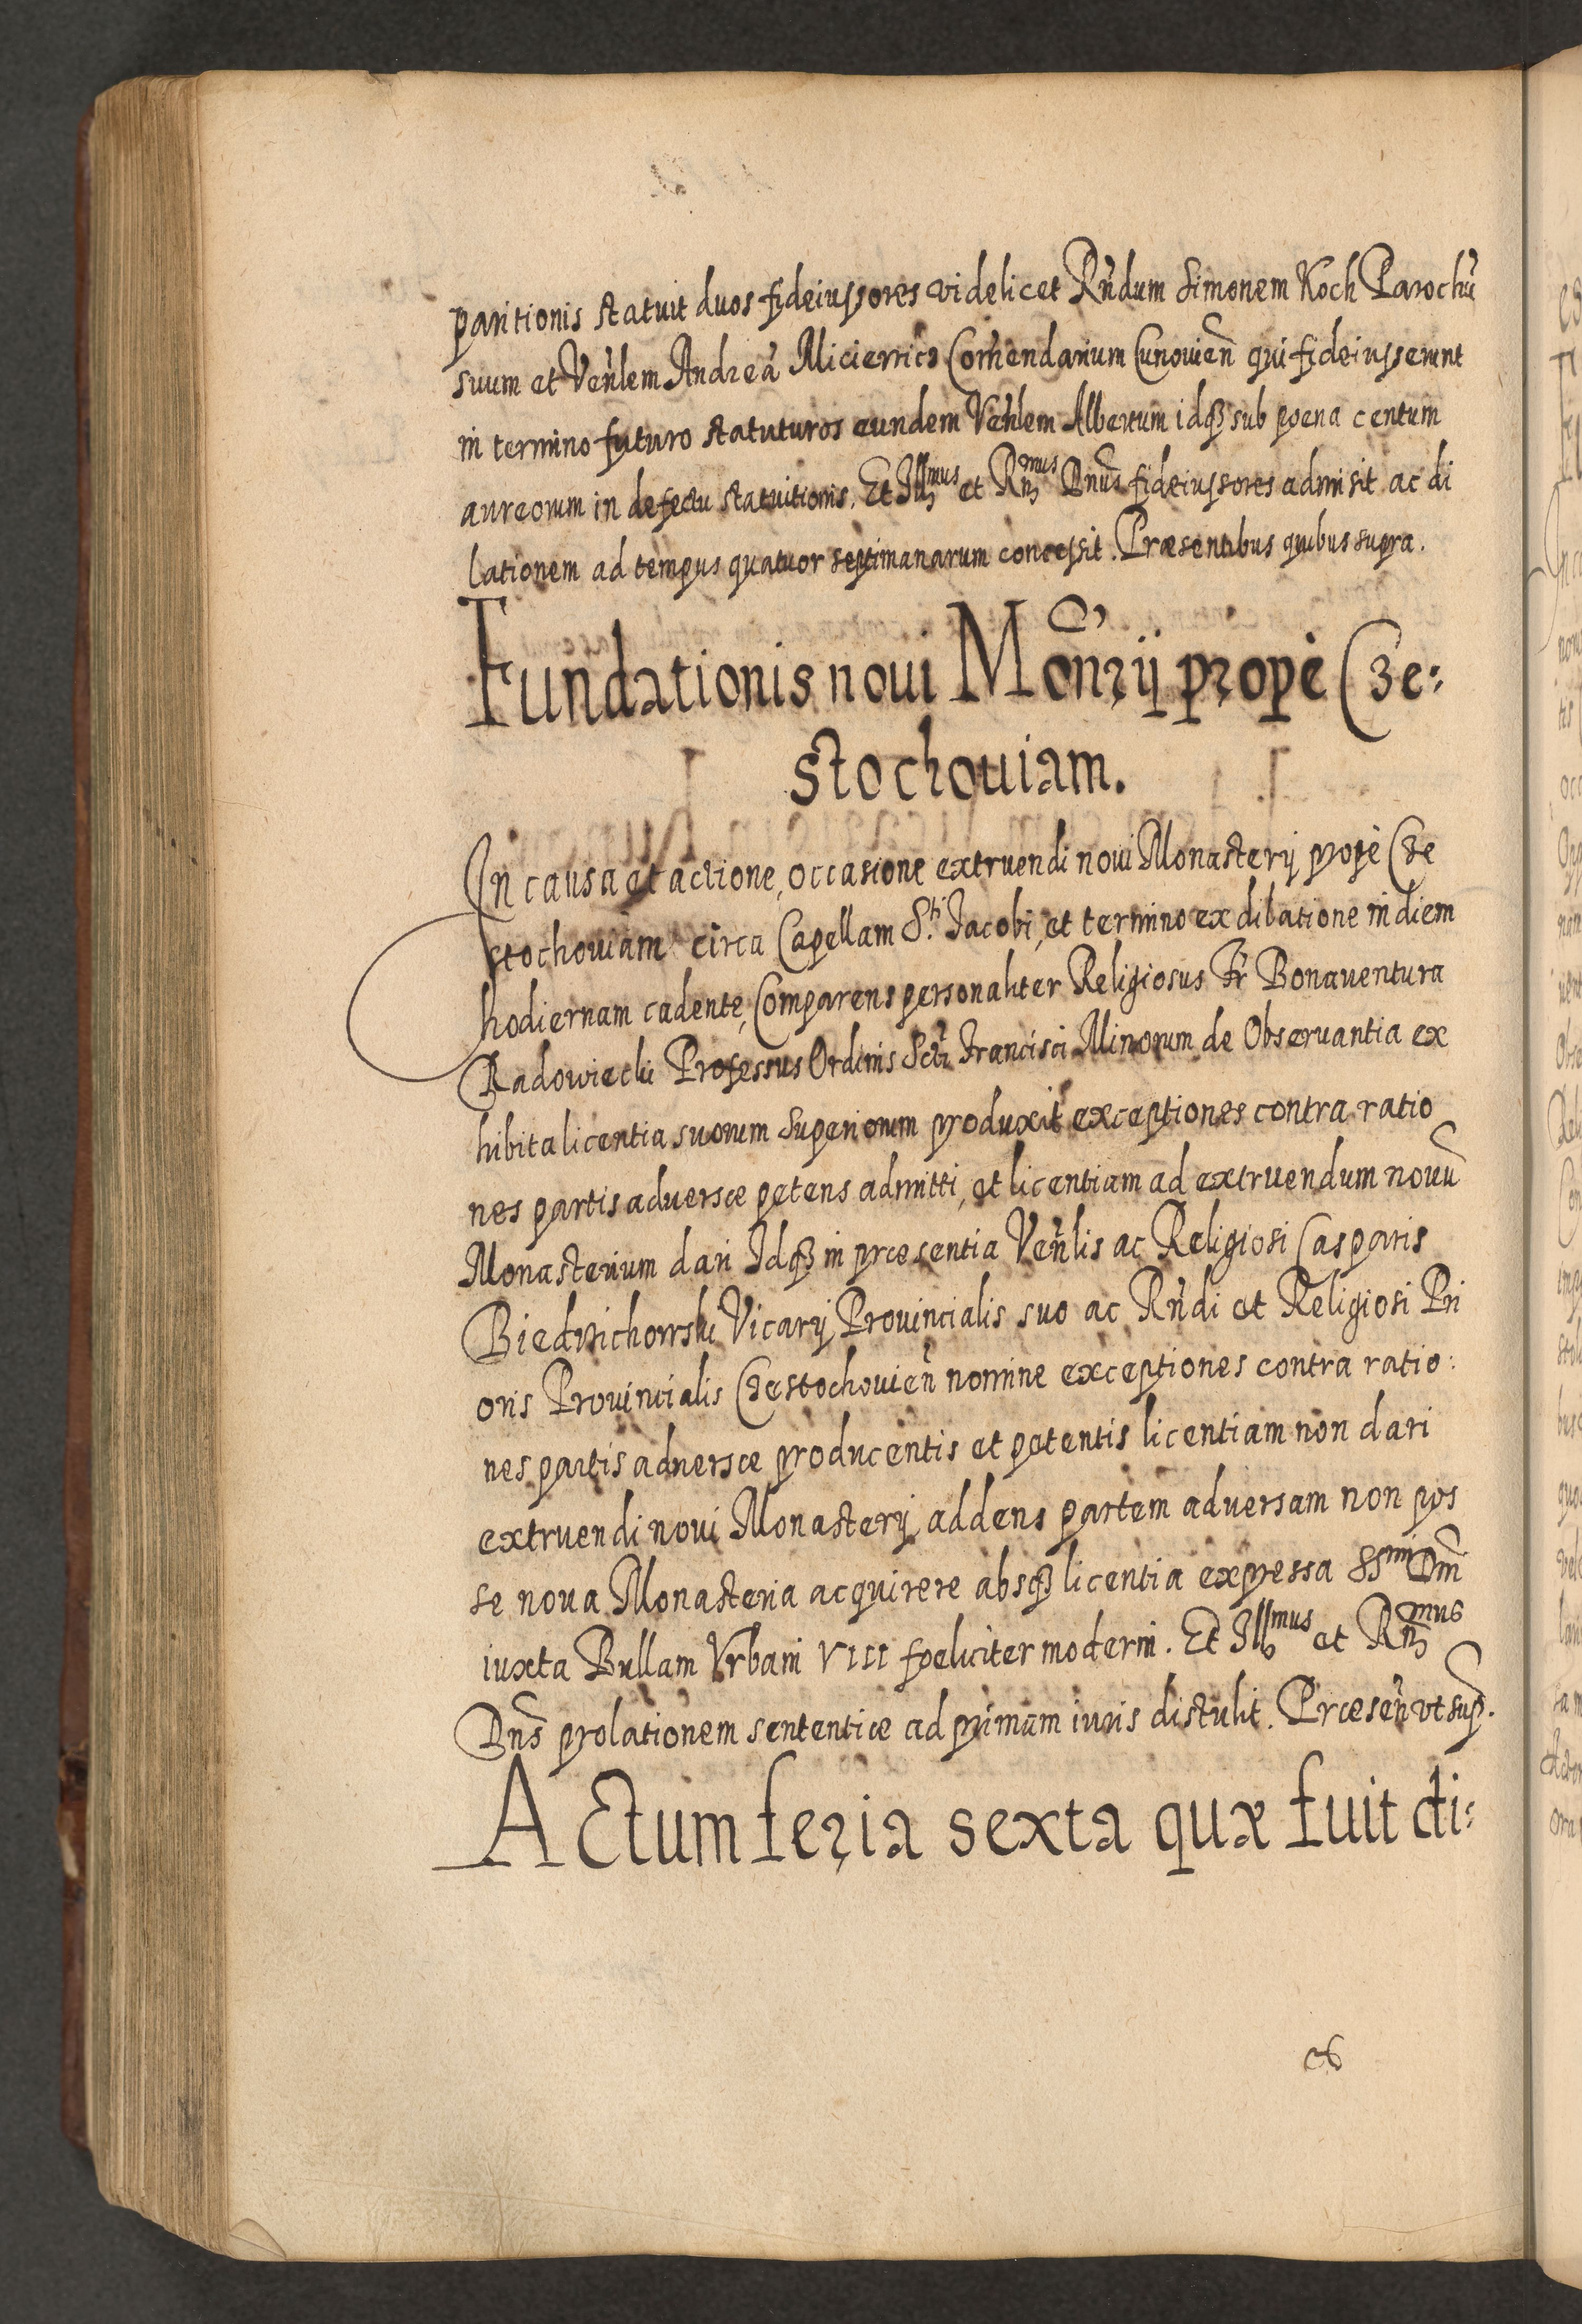 paritionis statuit duos fideiussores videlicet Rñdum Simonem Koch Parochũ
suum et Veñlem Andreã Micierrico Com̃endarium Cunouieñ qui fideiusserunt
in termino futuro statuturos eundem Veñlem Albertum idqȝ sub poena centum
aureorum in defectu statuitionis. Et Illmus et Rñmus Dnũs fideiussores admisit ac di
lationem ad tempus quatuor septimanarum concessit. Præsentibus quibus supra.
Fundationis noui Moñrij propè Cze:
stochouiam.
In causa et actione, occasione extruendi noui Monasterij propè Cze
stochouiam circa Capellam S.ti Jacobi, et termino ex dilatione in diem
hodiernam cadente, Comparens personaliter Religiosus Fr̃ Bonauentura
Radowiecki Professus Ordinis Scti Francisci Minorum de Obseruantia ex
hibita licentia suorum Superiorum produxit exceptiones contra ratio
nes partis aduersæ petens admitti, et licentiam ad extruendum nouũ
Monasterium dari Idqȝ in præsentia Veñlis ac Religiosi Casparis
Biedrzichowski Vicarij Prouincialis suo ac Rñdi et Religiosi Pri
oris Prouincialis Czestochouieñ nomine exceptiones contra ratio:
nes partis aduersæ producentis et petentis licentiam non dari
extruendi noui Monasterij addens partem aduersam non pos
se noua Monasteria acquirere absqȝ licentia expressa SSmi Dñi
iuxta Bullam Vrbani VIII foeliciter moderni. Et Illmus et Rñmus
Dnũs prolationem sententiæ ad primam iuris distulit. Præseñ vt sup.
Actum feria sexta quæ fuit di:
es